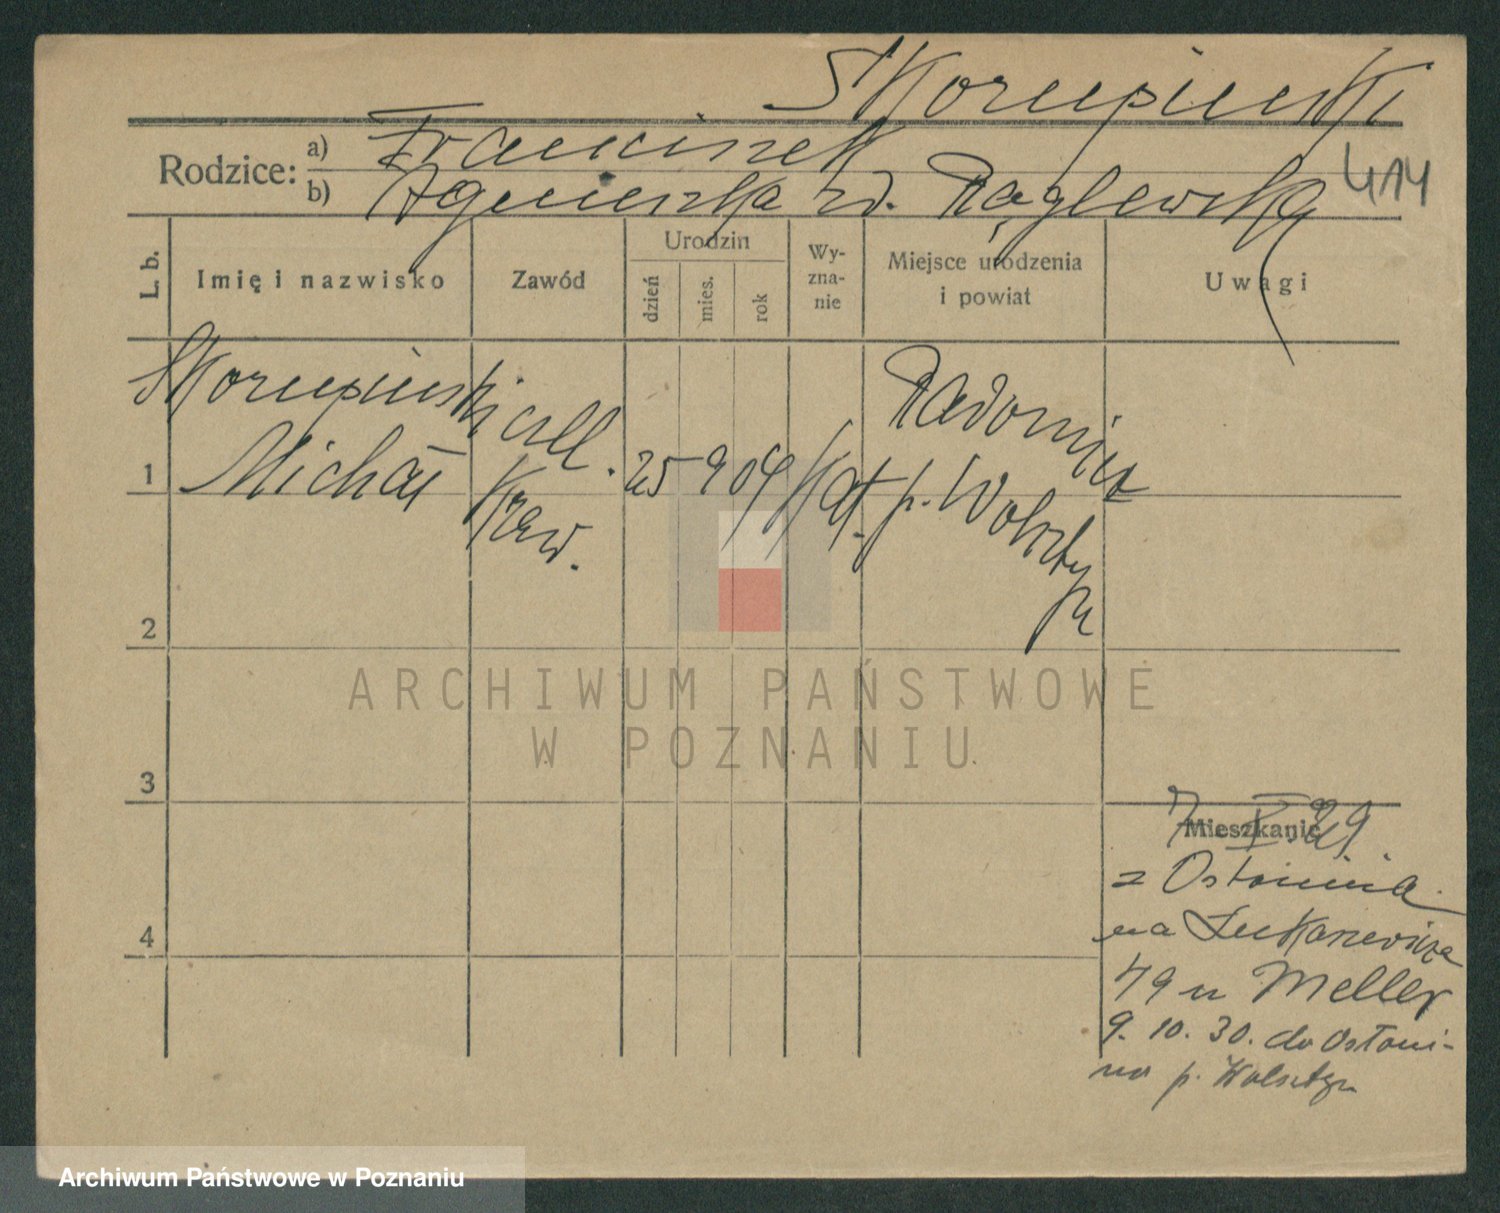 Skorupinski
Rodzice: a) Franciszek
b) Agnieszka zd. Rąglewska
414
L. b.
Imię i nazwisko
Zawód
Urodzin
dzień
mies.
rok
Wy-
zna-
nie
Miejsce urodzenia
i powiat
Uwagi
Skorupinski
Michał
czel.
Kraw.
1
25 9 04
Kat.
Radomierz
p. Wolszty
n
2
3
4
Mieszkanie
7. X. 29
z Ostonina
na Łukaszewicza
49 u Meller
9. 10. 30. do Ostoni-
na p. Wolsztyn
ARCHIWUM PAŃSTWOWE
W POZNANIU
Archiwum Państwowe w Poznaniu